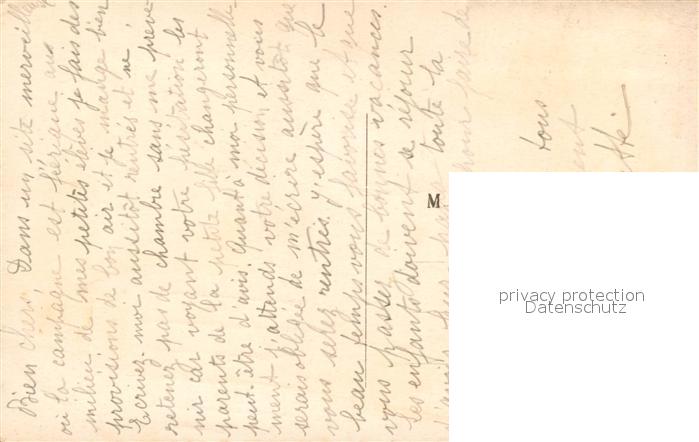 Bien chers, Dans un site merveilleux
où la campagne est féérique au
milieu de mes petites élèves je fais des
provisions de bon air et je mange bien
Ecrivez-moi aussitôt rentrés et ne
retenez pas de chambre sans me préve
nir car voyant votre hésitation les
parents de la petite fille changeront
peut être d'avis. Quant à moi personnelle
ment j'attends votre décision et vous
serais obligée de m'écrire aussitôt que
vous serez rentrés. J'espère que le
beau temps vous favorise et que
vous passez de bonnes vacances.
Les enfants doivent se réjouir
toute la
pour faire de
tous
M
privacy protection
Datenschutz